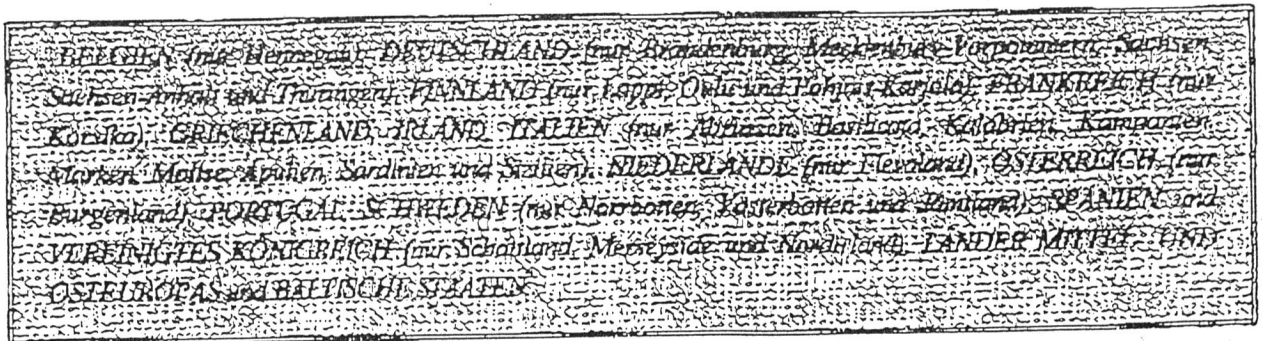 BELGIEN (nur Hennegau), DEUTSCHLAND (nur Brandenburg, Mecklenburg-Vorpommern, Sachsen,
Sachsen-Anhalt und Thüringen), FINNLAND (nur Lappi, Oulu und Pohjois-Karjala), FRANKREICH (nur
Korsika), GRIECHENLAND, IRLAND, ITALIEN (nur Abruzzen, Basilicata, Kalabrien, Kampanien,
Marken, Molise, Apulien, Sardinien und Sizilien), NIEDERLANDE (nur Flevoland), ÖSTERREICH (nur
Burgenland), PORTUGAL, SCHWEDEN (nur Norrbotten, Västerbotten und Jämtland), SPANIEN und
VEREINIGTES KÖNIGREICH (nur Schottland, Merseyside und Nordirland), LÄNDER MITTEL- UND
OSTEUROPAS und BALTISCHE STAATEN